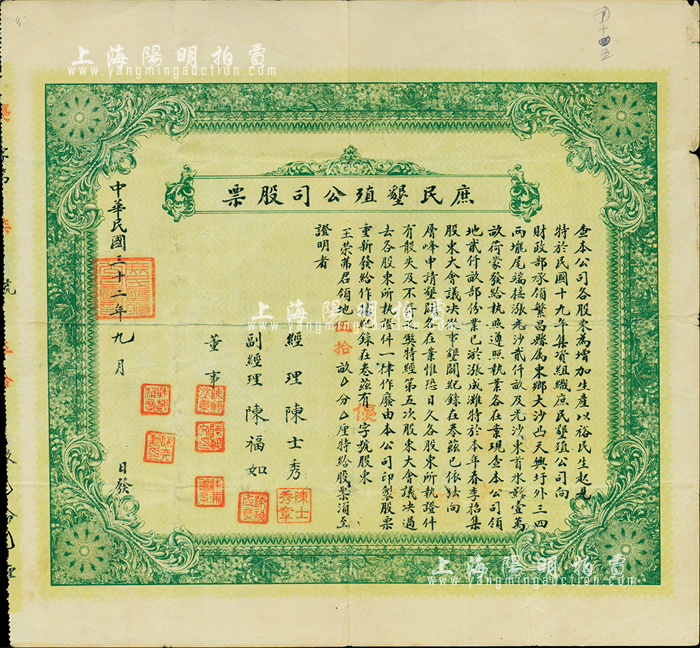 庶民墾殖公司股票
查本公司各股東為增加生產以裕民生起見
特於民國十九年集資組織庶民墾殖公司向
財政部承領繁昌縣屬東鄉大沙凸天興圩外三四
兩壠尾端接漲光沙貳仟畝及光沙東首水影壹萬
畝荷蒙發給執照遵照執業各在業現查本公司領
地貳仟畝部份業已淤漲成灘特於本年春季招集
股東大會議決從事墾闢紀錄在卷茲已依法向
層峰申請墾闢各在業惟恐日久各股東所執證件
有散失及不齊之弊特經第五次股東大會議決過
去各股東所執證件一律作廢由本公司印製股票
重新發給作據紀錄在卷茲有復字號股東
王榮蒂君領地伍拾畝 分 厘特給股票須至
證明者
經理 陳士秀
副經理 陳福如
董事
中華民國三十二年九月 日發
上海陽明拍賣
www.yangmingauction.com
上海陽明拍賣
www.yangmingauction.com
上海陽明拍賣
www.yangmingauction.com